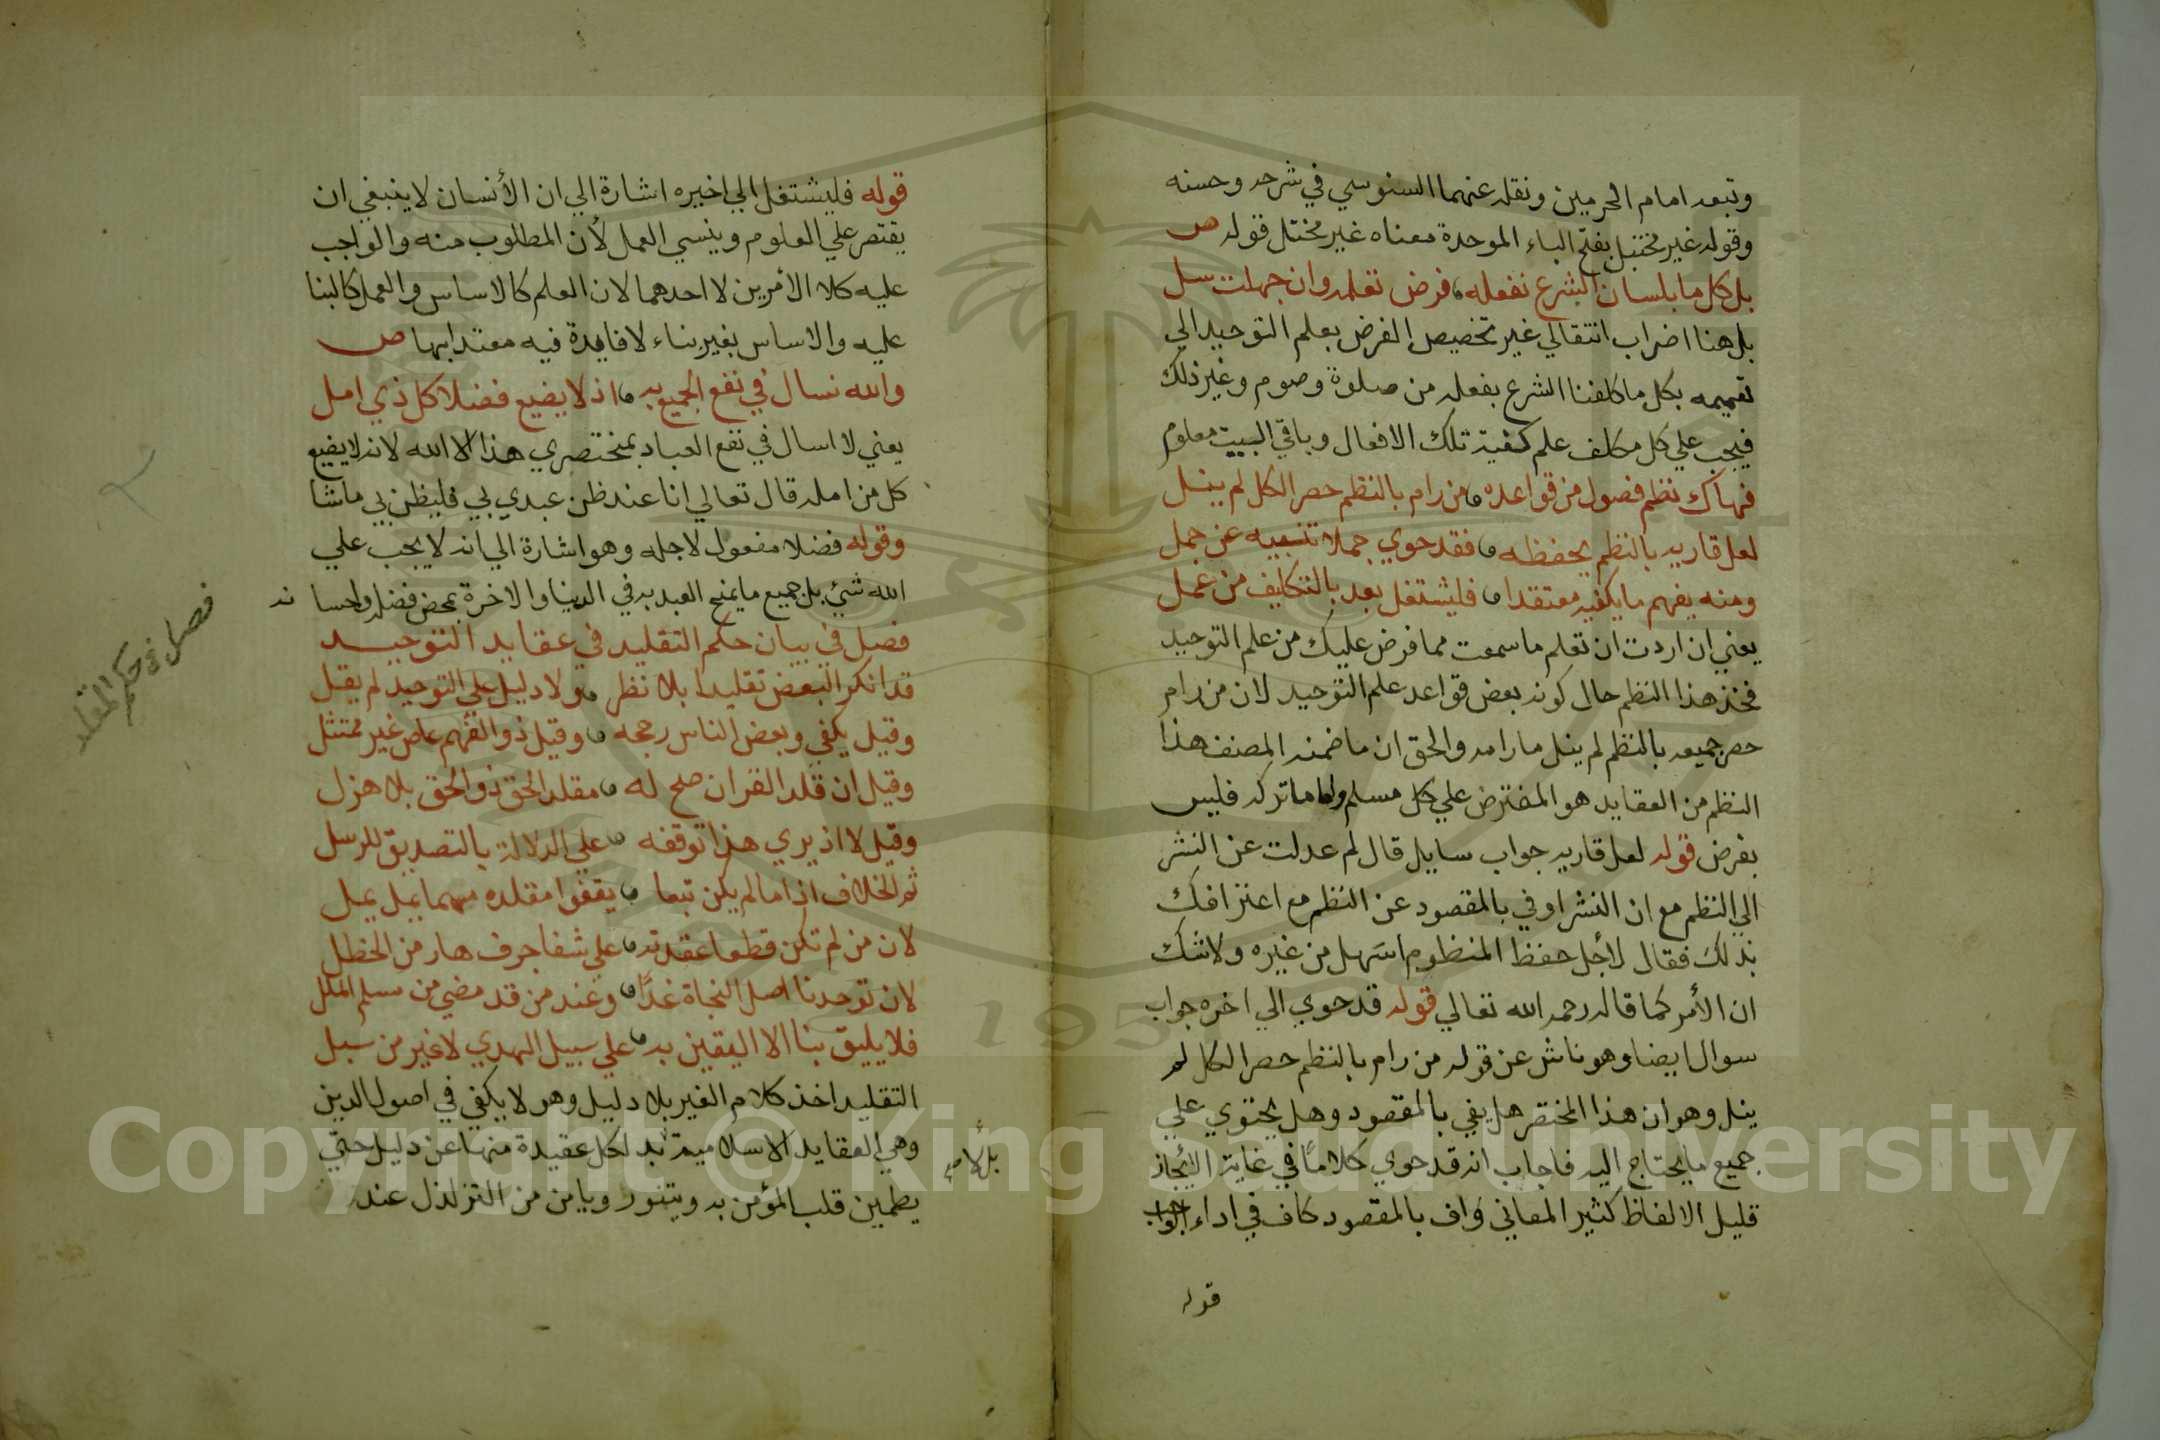 وتبعه امام الحرمين ونقله عنهما السنوسي في شرحه وحسنه
وقوله غير مختبل بفتح الباء الموحدة معناه غير مختل قوله ص
بل كل ما بلسان الشرع نفعله فرض تعلمه وان جهلت سل
بل هنا اضراب انتقالي غير تخصيص الفرض بعلم التوحيد الي
تعميمه بكل ما كلفنا الشرع بفعله من صلوة وصوم وغير ذلك
فيجب علي كل مكلف علم كيفية تلك الافعال وباقي البيت معلوم
فهاك نظم فصول من قواعده من رام بالنظم حصر الكل لم ينل
لعل قاريه بالنظم يحفظه فقد حوي جملا تنبيه عن جمل
ومنه يفهم ما يكفيه معتقدا فليشتغل بعد بالتكليف من عمل
يعني ان اردت ان تعلم ما سمعت مما فرض عليك من علم التوحيد
فخذ هذا النظم حال كونه بعض قواعد علم التوحيد لان من رام
حصر جميعه بالنظم لم ينل ما رامه والحق ان ما ضمنه المصنف هذا
النظم من العقايد هو المفترض علي كل مسلم واما ما تركه فليس
بفرض قوله لعل قاريه جواب سايل قال لم عدلت عن النشر
الي النظم مع ان النشر اوفي بالمقصود عن النظم مع اعترافك
بذلك فقال لأجل حفظ المنظوم اسهل من غيره ولا شك
ان الأمر كما قاله رحمه الله تعالي قوله قد حوي الي اخره جواب
سوال ايضا وهو ناش عن قوله من رام بالنظم حصر الكل لم
ينل وهو ان هذا المختصر هل يفي بالمقصود وهل يحتوي علي
جميع ما يحتاج اليه فاجاب انه قد حوي كلاما في غاية الايجاز
قليل الالفاظ كثير المعاني واف بالمقصود كاف في اداء الواجب
قوله
قوله فليشتغل الي اخيره اشارة الي ان الأنسان لا ينبغي ان
يقتصر علي العلوم وينسي العمل لأن المطلوب منه والواجب
عليه كلا الأمرين لا احدهما لان العلم كالاساس والعمل كالبنا
عليه والاساس بغير بناء لا فايدة فيه معتدا بها ص
والله نسال في نفع الجميع به اذ لا يضيع فضلا كل ذي امل
يعني لا اسال في نفع العباد بمختصري هذا الا الله لانه لا يضيع
كل من امله قال تعالي انا عند ظن عبدي بي فليظن بي ما شا
وقوله فضلا مفعول لاجله وهو اشارة الي انه لا يجب علي
الله شئ بل جميع ما يمنح العبد به في الدنيا والاخرة بمحض فضله واحسا نه
فصل في بيان حكم التقليد في عقايد التوحيد
فصل في حكم المقلد
قد انكر البعض تقليدا بلا نظر ولا دليل علي التوحيد لم يقل
وقيل يكفي وبعض الناس رجحه وقيل ذو الفهم عاص غير ممتثل
وقيل ان قلد القران صح له مقلد الحق ذو الحق بلا هزل
وقيل لا اذ يري هذا توقفه علي الدلالة بالتصديق للرسل
ثم الخلاف اذا ما لم يكن تبعا يقفوا مقلده مهما يمل يمل
لان من لم تكن قطعا عقدته علي شفا جرف هار من الخطل
لان توحدنا اصل النجاة غدا وعند من قد مضي من سلم الملل
فلا يليق بنا الا اليقين به علي سبيل الهدي لا غير من سبل
التقليد اخذ كلام الغير بلا دليل وهو لا يكفي في اصول الدين
وهي العقايد الاسلامية بد لكل عقيدة منها عن دليل حتي
بل لا
يطمين قلب المؤمن به ويتنور ويامن من التزلذل عند
Copyright © King Saud University
1957